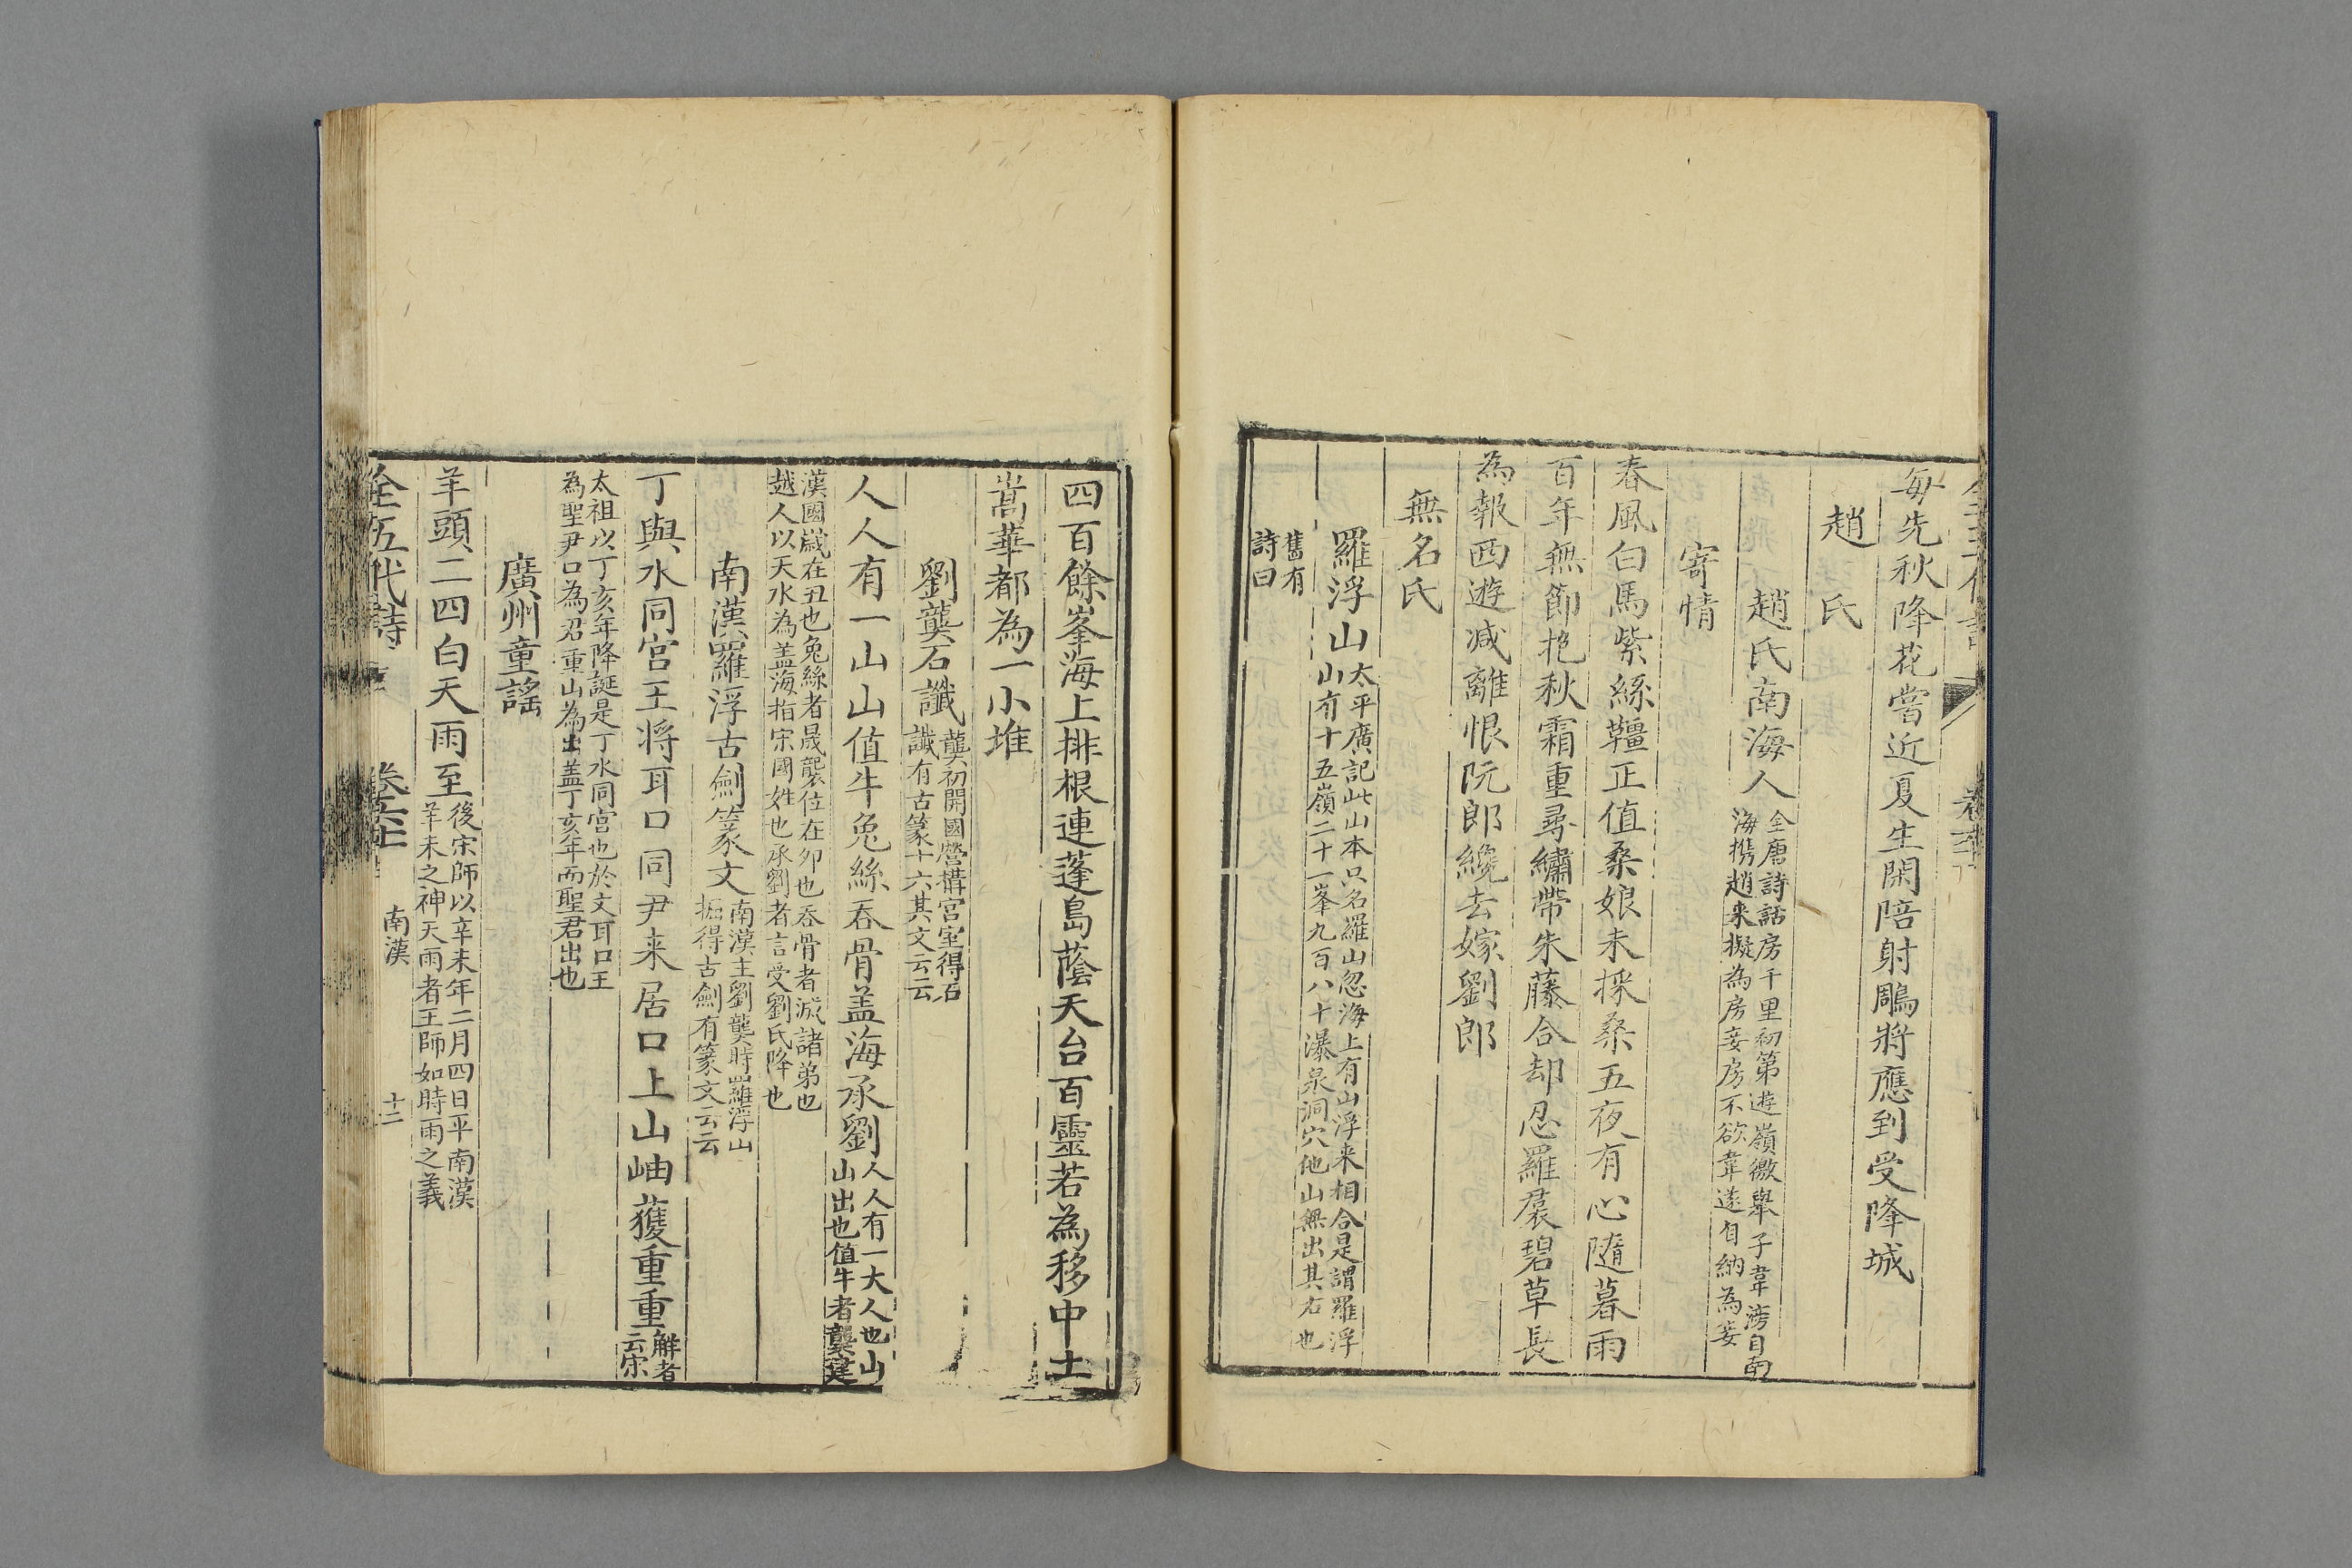 每先秋降花嘗近夏生閑陪射鵰將應到受降城
趙氏
趙氏南海人
全唐詩話房千里初第遊嶺徼舉子韋滂自南
海携趙来擬為房妾房不欲韋遂自納為妾
寄情
春風白馬紫絲韁正值桑娘未採桑五夜有心隨暮雨
百年無節抱秋霜重尋繡帶朱藤合却忍羅裠碧草長
為報西遊减離恨阮郎纔去嫁劉郎
無名氏
羅浮山
太平廣記此山本只名羅山忽海上有山浮来相合是謂羅浮
山有十五嶺二十一峯九百八十瀑泉洞穴他山無出其右也
舊有
詩曰
四百餘峯海上排根連蓬島蔭天台百靈若為移中土
嵩華都為一小堆
劉龑石讖
龑初開國營構宮室得石
讖有古篆十六其文云云
人人有一山山值牛兔絲吞骨盖海承劉
人人有一大人也山
山出也值牛者龑建
漢國歲在丑也兔絲者晟襲位在夘也吞骨者滅諸弟也
越人以天水為盖海指宋國姓也承劉者言受劉氏降也
南漢羅浮古劍篆文
南漢主劉龑時羅浮山
掘得古劍有篆文云云
丁與水同宫王将耳口同尹来居口上山岫獲重重
解者
云宋
太祖以丁亥年降誕是丁水同宫也於文耳口王
為聖尹口為君重山為出盖丁亥年而聖君出也
廣州童謡
羊頭二四白天雨至
後宋師以辛未年二月四日平南漢
羊未之神天雨者王師如時雨之義
全五代詩
南漢
十二